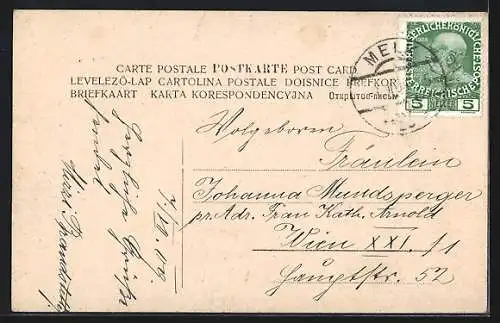 CARTE POSTALE POSTKARTE POST CARD
LEVELEZŐ-LAP CARTOLINA POSTALE DOISNICE BREFKORT
BRIEFKAART KARTA KORESPONDENCYJNA Открытое письмо
KAISERLICHE KÖNIGLICHE
ÖSTERREICHISCHE
5 HELLER 5
MEL
Wolgeboren
Fräulein
Johanna Mundsperger
pr. Adr. Frau Kath. Arnold
Wien XXI. /1
Hauptstr. 52
Herzliche Grüße
sendet